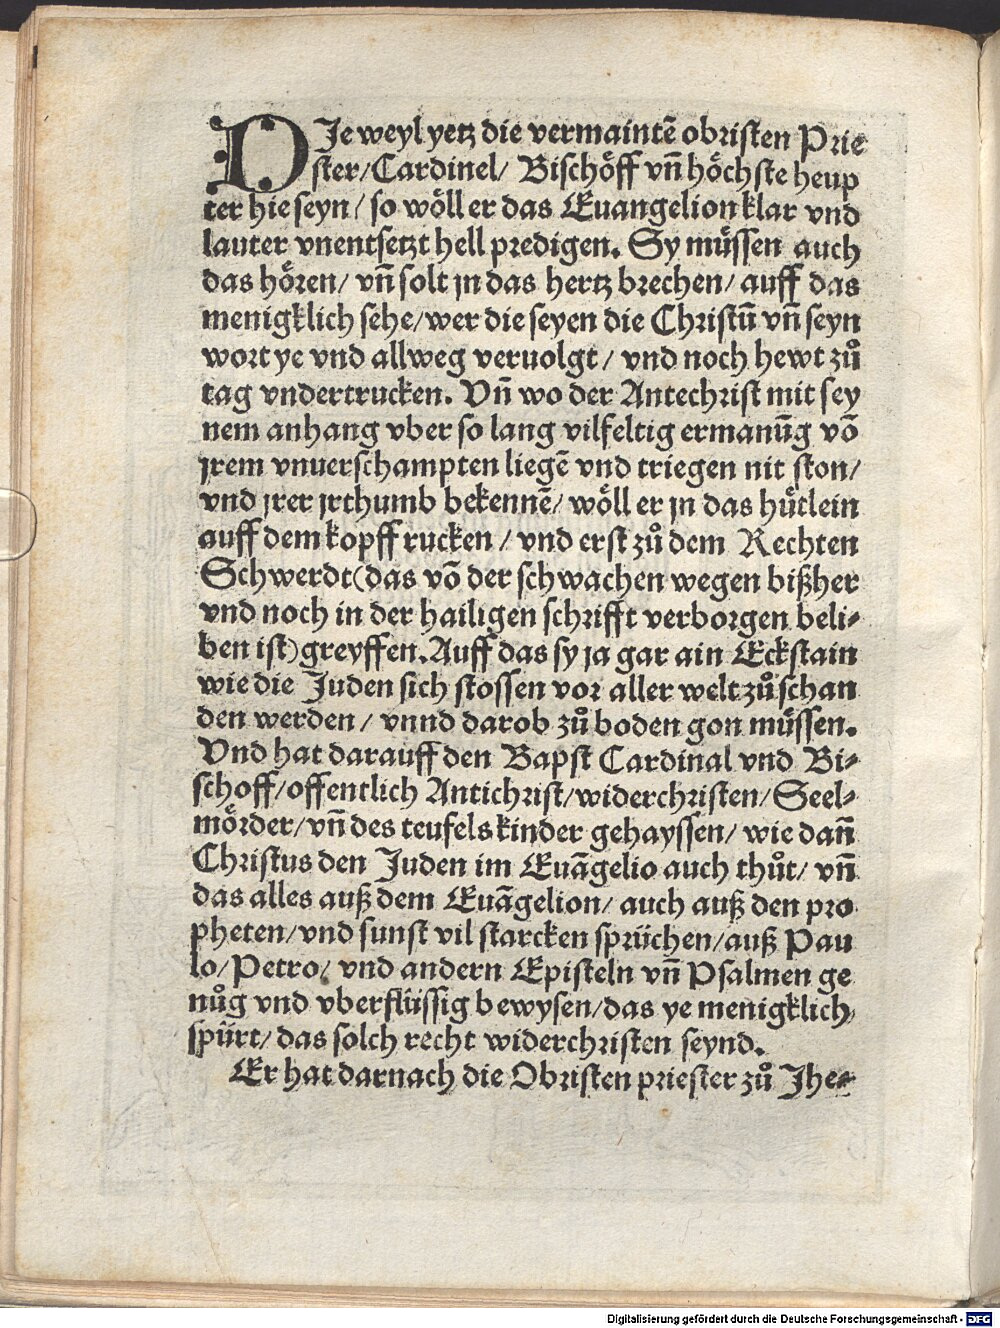 DJe weyl yetz die vermaintē obristen Prie
ster/Cardinel/ Bischoͤff vn̄ hoͤchste heup
ter hie seyn/ so woͤll er das Euangelion klar vnd
lauter vnentsetzt hell predigen. Sy muͤssen auch
das hoͤren/ vn̄ solt jn das hertz brechen/ auff das
menigklich sehe/wer die seyen die Christū vn̄ seyn
wort ye vnd allweg veruolgt/ vnd noch hewt zuͦ
tag vndertrucken. Vn̄ wo der Antechrist mit sey
nem anhang vber so lang vilfeltig ermanūg vō
jrem vnuerschampten liegē vnd triegen nit ston/
vnd jrer jrthumb bekennē/ woͤll er jn das huͤtlein
auff dem kopff rucken/ vnd erst zuͦ dem Rechten
Schwerdt(das vō der schwachen wegen bißher
vnd noch in der hailigen schrifft verborgen beli⸗
ben ist)greyffen.Auff das sy ja gar ain Eckstain
wie die Juden sich stossen vor aller welt zuͦ schan
den werden/ vnnd darob zuͦ boden gon muͤssen.
Vnd hat darauff den Bapst Cardinal vnd Bi⸗
schoff/offentlich Antichrist/widerchristen/Seel⸗
moͤrder/vn̄ des teufels kinder gehayssen/ wie dan̄
Christus den Juden im Euāgelio auch thuͦt/ vn̄
das alles auß dem Euāgelion/ auch auß den pro
pheten/vnd sunst vil starcken spruͤchen/auß Pau
lo/Petro/ vnd andern Episteln vn̄ Psalmen ge
nuͦg vnd vberfluͤssig bewysen/das ye menigklich
spuͤrt/das solch recht widerchristen seynd.
Er hat darnach die Obristen priester zuͦ Jhe⸗
Digitalisierung gefördert durch die Deutsche Forschungsgemeinschaft - DFG